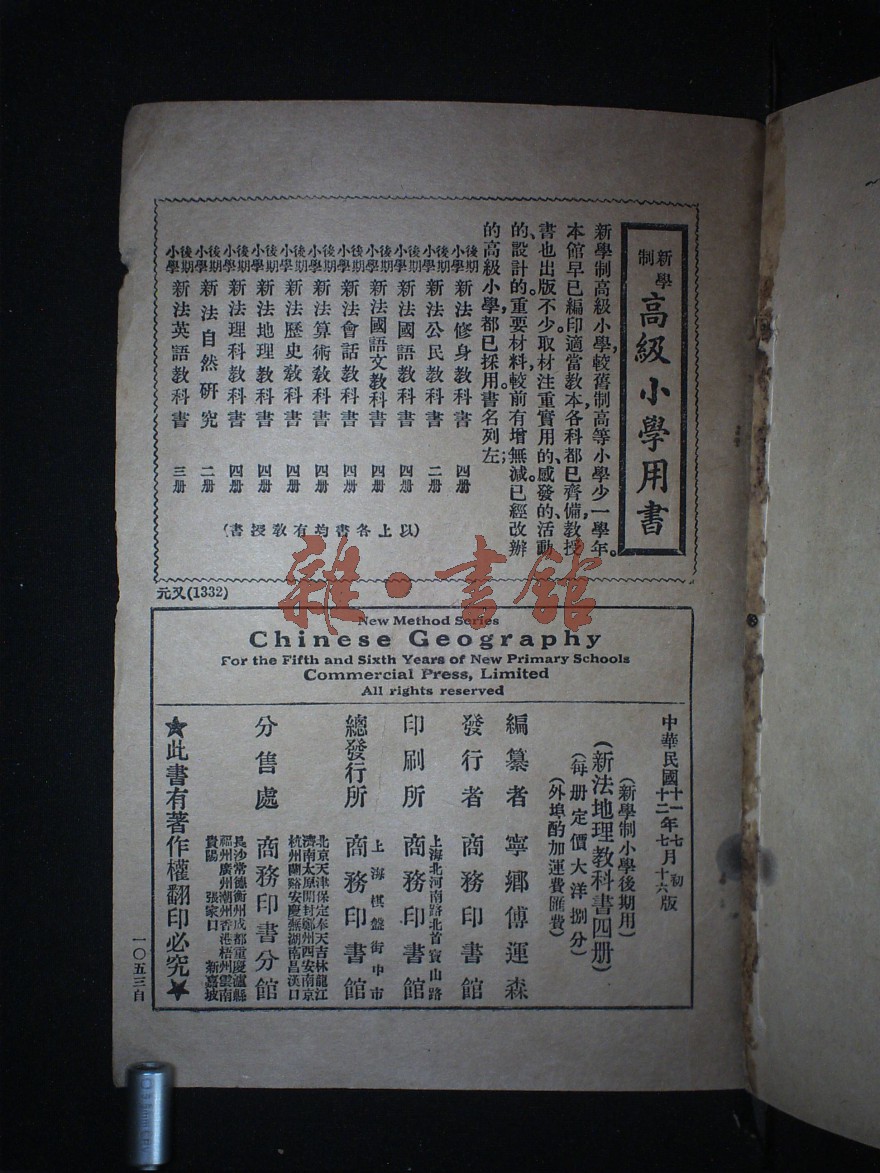 新學制高級小學用書
新學制高級小學，較舊制高等小學少一學年。
本館早已編印適當教本，各科都已齊備，教授
書也出版不少。取材注重實用的、感發的、活動
的、設計的。重要材料，較前有增無減。已經改辦
的高級小學，都已採用。書名列左；
後期小學 新法修身教科書 四册
後期小學 新法公民教科書 二册
後期小學 新法國語教科書 四册
後期小學 新法國語文教科書 四册
後期小學 新法會話教科書 四册
後期小學 新法算術教科書 四册
後期小學 新法歷史教科書 四册
後期小學 新法地理教科書 四册
後期小學 新法理科教科書 四册
後期小學 新法自然研究 二册
後期小學 新法英語教科書 三册
(以上各書均有教授書)
元又(1332)
雜·書館
New Method Series
Chinese Geography
For the Fifth and Sixth Years of New Primary Schools
Commercial Press, Limited
All rights reserved
中華民國十一年七月初版
十二年七月十六版
(新學制小學後期用)
(新法地理教科書四册)
(每册定價大洋捌分)
(外埠酌加運費匯費)
編纂者 寧鄉傅運森
發行者 商務印書館
印刷所 上海北河南路北首寶山路 商務印書館
總發行所 上海棋盤街中市 商務印書館
分售處 商務印書分館
北京天津保定奉天吉林龍江
濟南太原開封鄭州西安南京
杭州蘭谿安慶蕪湖南昌漢口
長沙常德衡州成都重慶瀘縣
福州廣州潮州香港梧州雲南
貴陽 張家口 新嘉坡
★此書有著作權翻印必究★
一〇五三自